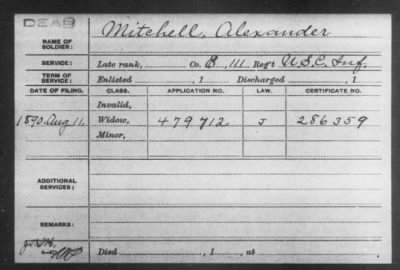 DEAB
Mitchell, Alexander
NAME OF SOLDIER:
SERVICE: Late rank, Co. B, 111 Reg't U.S.C. Inf.
TERM OF SERVICE: Enlisted , 1 Discharged , 1
DATE OF FILING. CLASS. APPLICATION NO. LAW. CERTIFICATE NO.
Invalid,
1890 Aug 11 Widow, 479712 J 286359
Minor,
ADDITIONAL SERVICES:
REMARKS:
Died , 1 , at